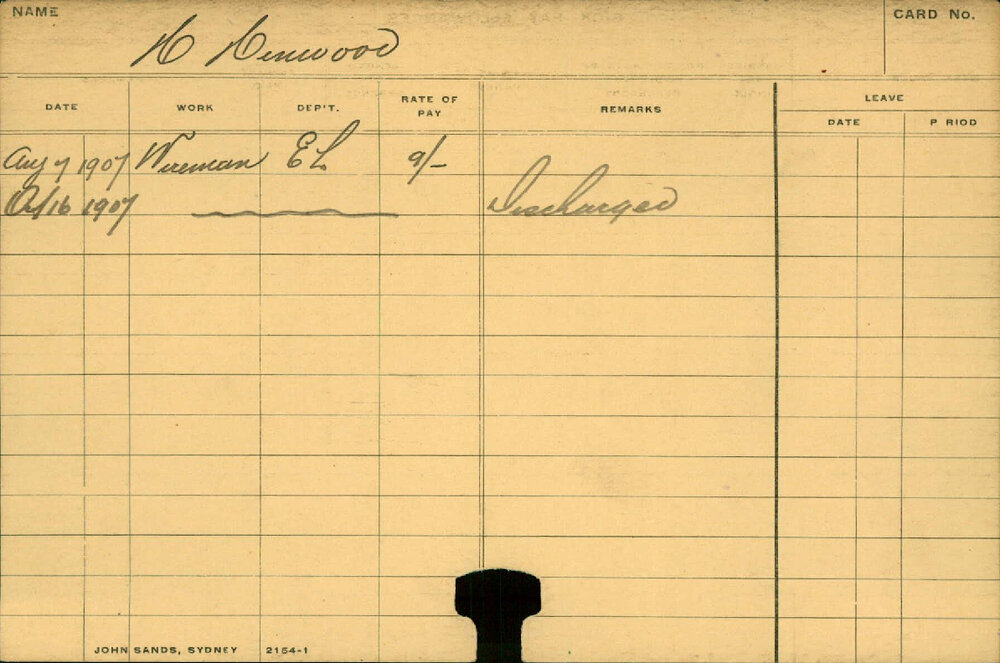 NAME
H Henwood
CARD No.
DATE WORK DEP'T. RATE OF PAY REMARKS LEAVE
DATE P RIOD
Aug 7 1907 Wireman EL 9/-
Oct 16 1907 Discharged
JOHN SANDS, SYDNEY 2154-1